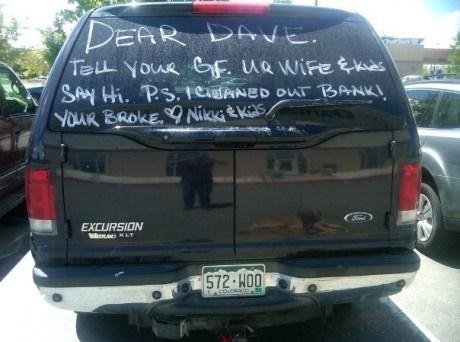 DEAR DAVE.
TELL YOUR GF. UR WIFE & Kids
SAY Hi. P.S. I CLEANED OUT BANK!
YOUR BROKE. ♡ Nikki & Kids
EXCURSION
XLT
Ford
572-WOO
COLORADO